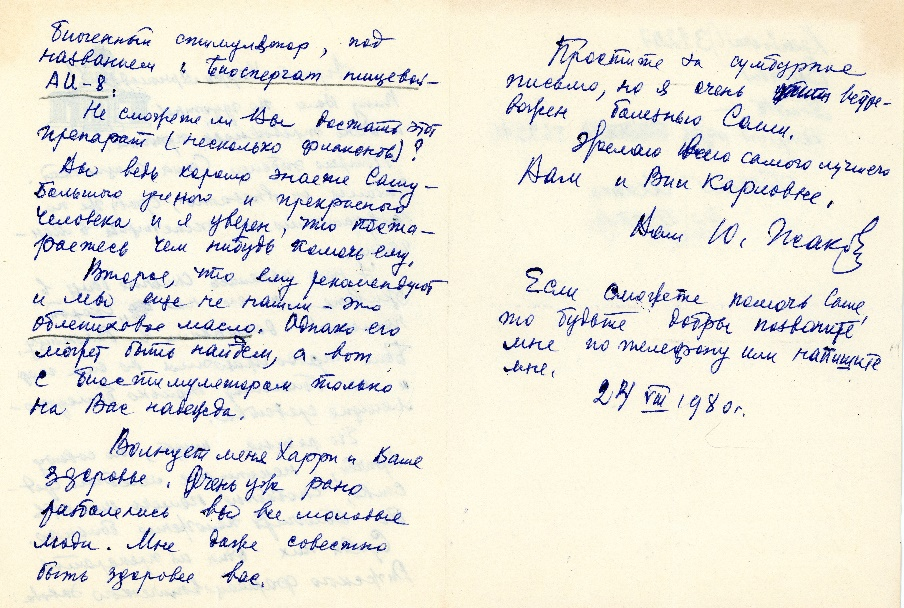 Биогенный стимулятор, под
названием "Биоспергат пищевой-
АЦ-8.
Не сможете ли Вы достать этот
препарат (несколько флаконов)?
Вы ведь хорошо знаете Сашу-
большого ученого и прекрасного
человека и я уверен, что поста-
раетесь чем нибудь помочь ему.
Второе, что ему рекомендуют
и чего еще не нашли - это
облепиховое масло. Однако его
может быть найдем, а вот
с биостимулятором только
на Вас надежда.
Волнует меня Харри и Ваше
здоровье. Очень уж рано
разболелись вы все молодые
люди. Мне даже совестно
быть здоровее вас.
Простите за сумбурное
письмо, но я очень встре-
вожен болезнью Саши.
Желаю всего самого лучшего
Вам и Вии Карловне.
Ваш Ю. Исаков
Если сможете помочь Саше,
то будьте добры позвоните
мне по телефону или напишите
мне.
24 VIII 1980г.